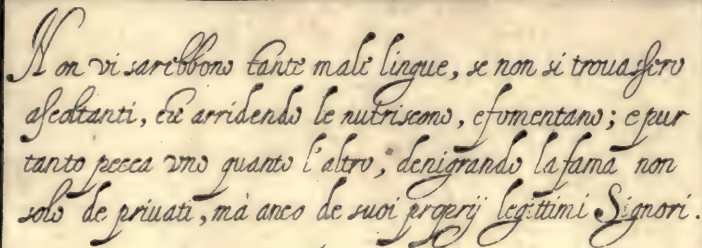 Non vi sarebbono tante male lingue, se non si trouassero
ascoltanti, che arridendo le nutriscono, e fomentano; e pur
tanto pecca vno quanto l'altro, denigrando la fama non
solo de priuati, mà anco de suoi proprij legittimi Signori.